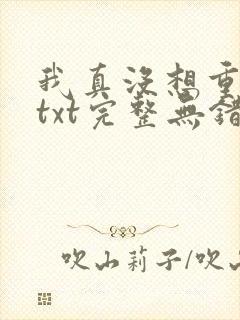 我真没想重
txt完整無錯
吹山莉子/吹山